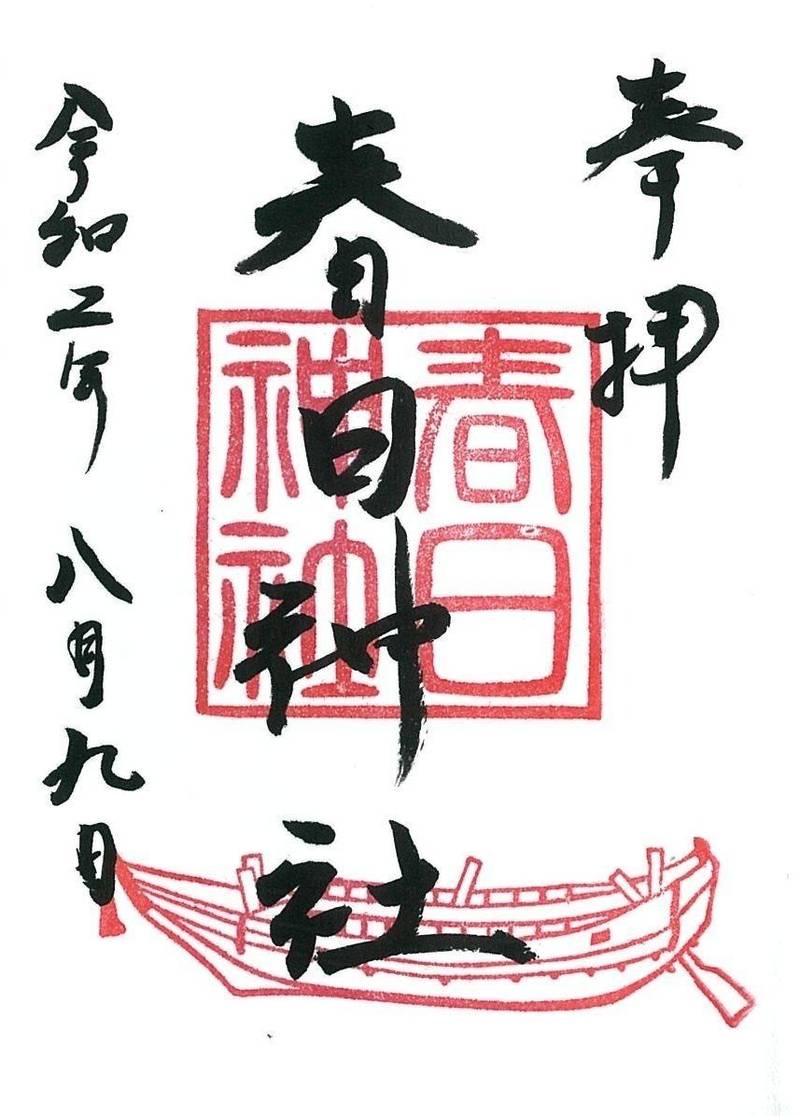 奉拝
春日神社
春日
神社
令和二年 八月九日